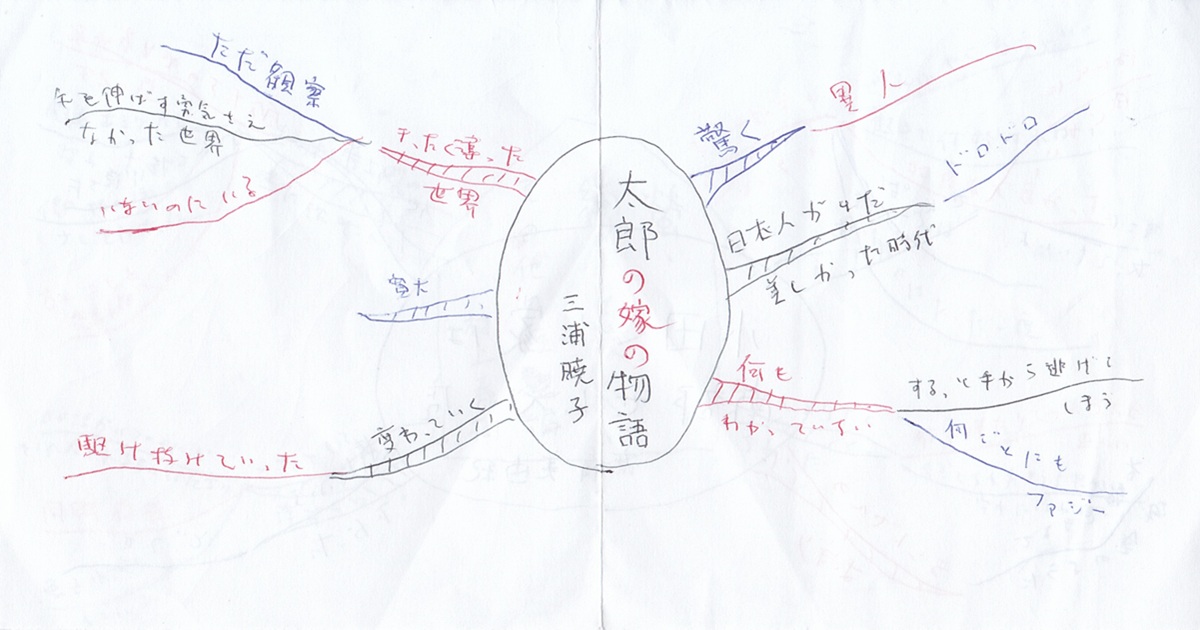 太郎の嫁の物語
三浦暁子
驚く
異人
日本人がまだ
美しかった時代
ドロドロ
何も
わかっていない
する、と手から逃げて
しまう
何ごとにも
ファジー
変わっていく
駆け抜けていった
寛大
まったく違った
世界
ただ観察
手を伸ばす勇気さえ
なかった世界
いないのにいる